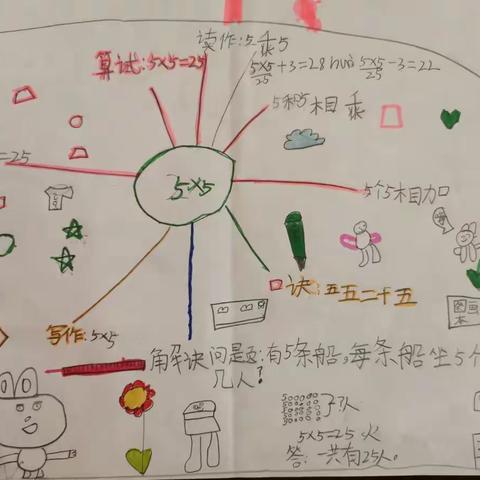 读作:5乘5
算试:5×5=25
5×5+3=28 5×5-3=22
25 25
5和5相乘
=25
5×5
5个5相加
口诀:五五二十五
写作:5×5
图画本
解决问是题:有5条船,每条船坐5个
几人?
}?人
5×5=25 人
答:一共有25人。